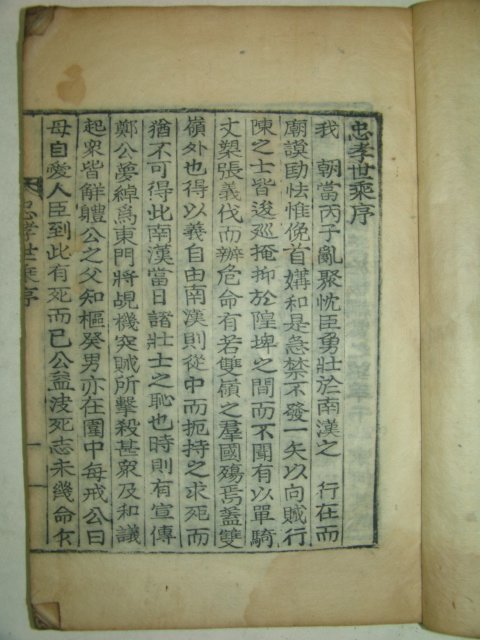 忠孝世乘序
我 朝當丙子亂聚忱臣勇壯於南漢之 行在而
廟謨劻怯惟俛首媾和是急禁不發一矢以向賊行
陳之士皆逡巡掩抑於隍埤之間而不聞有以單騎
丈槊張義伐而辦危命有若雙嶺之羣國殤焉蓋雙
嶺外也得以義自由南漢則從中而扼持之求死而
猶不可得此南漢當日諸壯士之恥也時則有宣傳
鄭公夢綽爲東門將覘機突賊所擊殺甚衆及和議
起衆皆解體公之父知樞癸男亦在圍中每戒公曰
母自愛人臣到此有死而已公益決死志未幾命
忠孝世乘序
一